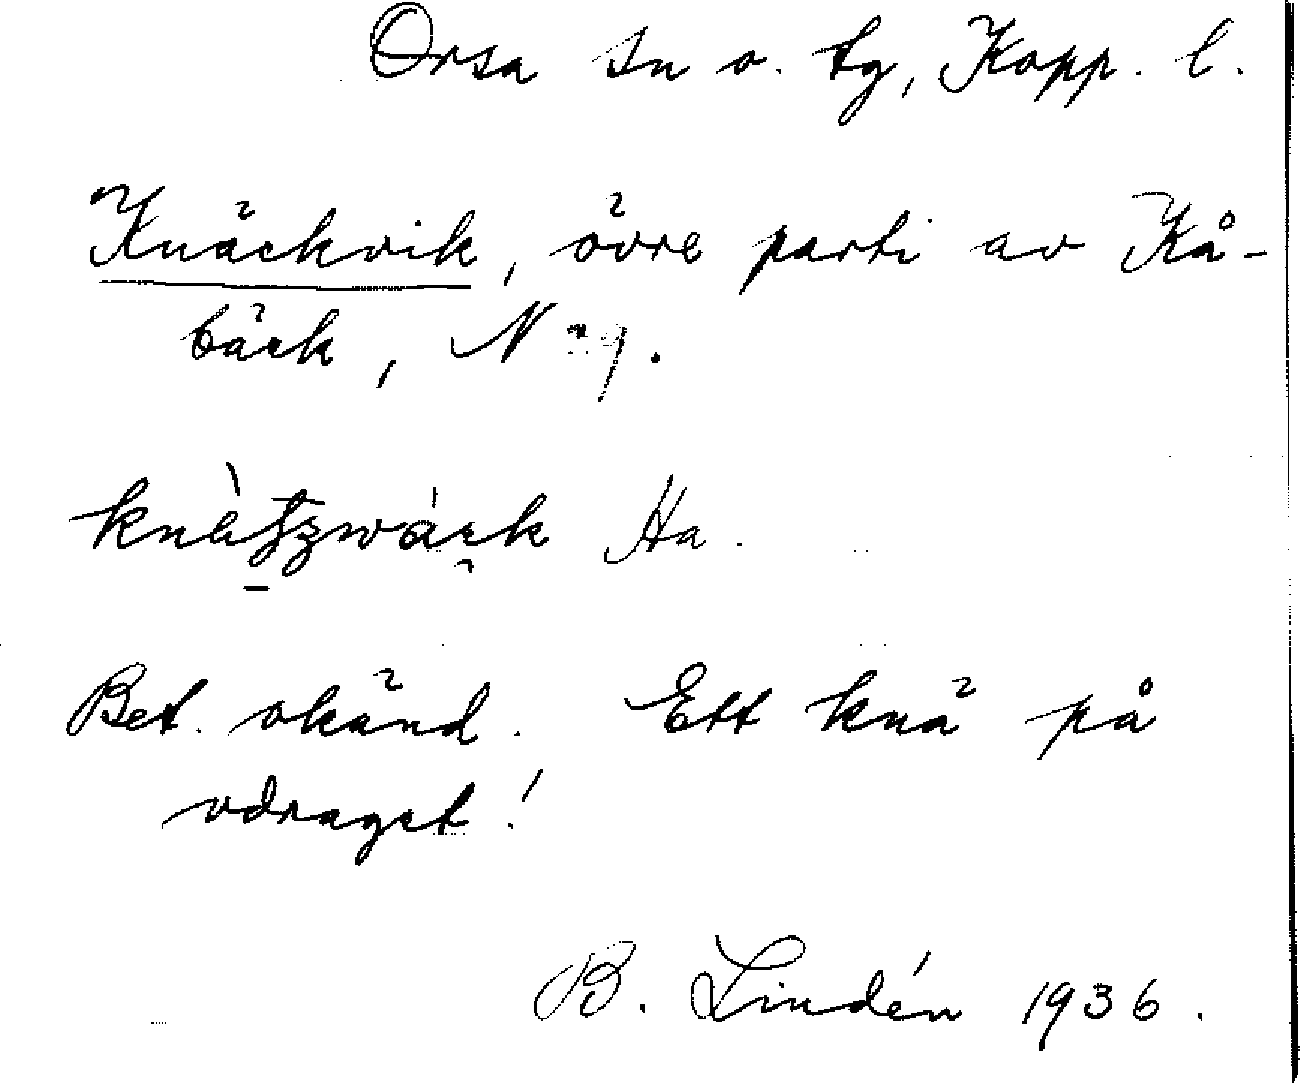 Orsa sn o. tg, Kopp. l.
Knäckvik, övre parti av Kå-
bäck, N
Ha.
Bet. okänd. Ett knä på
vdraget!
B. Lindén 1936.